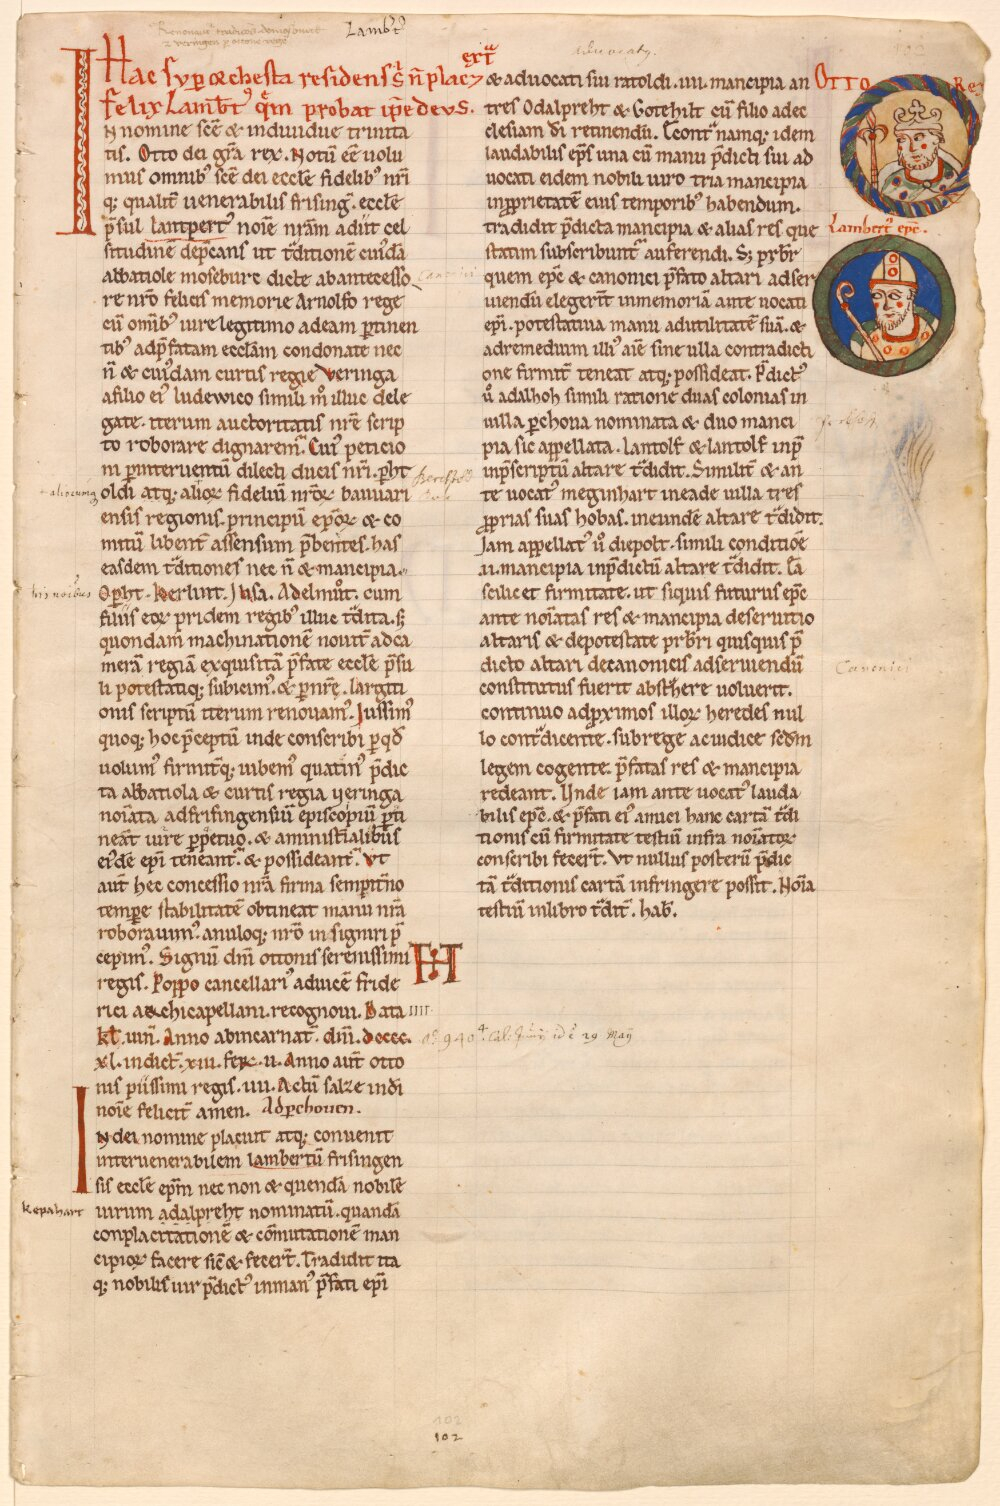 Lamb̄t᷒
Hac sup orchestra residens s; n̄ placuerat
felix Lamb̄t᷒ qm̄ probat ip̄e deus.
N nomine sc̄e & indiuidue trinita
tis. Otto dei gr̄a rex. Notū eē uolu
mus omnib᷒ sc̄e dei eccle fidelib᷒ nr̄i
q; qualit̄ uenerabilis frisinḡ. eccle
p̄sul lantpert᷒ noīe nr̄am adiit cel
situdine dep̄cans ut t̄ditionē cui᷒dā
abbatiole mosebure dicte ab antecesso
re nr̄o felicis memorie Arnolfo rege
cū om̄ib᷒ iure legitimo ad eam p̄tinen
tib᷒ ad p̄fatam eccl̄am condonate nec
n̄ & cui᷒dam curtis regie Veringa
a filio ei᷒ ludewico simili m̊ illuc dele
gate. iterum auctoritatis nr̄e scrip
to roborare dignarem᷒. Cui᷒ peticio
ni p̄ interuentū dilecti ducis nr̄i. p̄ht
oldi atq; alioꝝ fideliū nr̄oꝝ bauuari
ensis regionis. principū ep̄oꝝ & co
mitū libent̄ assensum p̄bentes. has
easdem t̄ditiones nec n̄ & mancipia.
Op̄ht. Kerlint. Jusa. Adelmůt. cum
filiis eoꝝ pridem regib᷒ illuc t̄dita. s;
quondam machinationē nouit̄ ad ca
merā regiā exquisitā p̄fate eccle p̄su
li potestatiq; subicim᷒. & p̄ nr̄ē. largiti
onis scriptū iterum renouam᷒. Jussim᷒
quoq; hoc p̄ceptū inde conscribi p̄ qd̄
uolum᷒ firmit̄q; iubem᷒ quatin᷒ p̄dic
ta abbatiola & curtis regia ueringa
noīata ad frisingensiū episcopiū p̄ti
neāt iure p̄petuo. & a ministialibus
ei᷒dē ep̄i teneant᷒ & possideant᷒. Vt
aut̄ hec concessio nr̄a firma sempit̄no
tempe stabilitatē obtineat manu nr̄a
roborauim᷒. anuloq; nr̄o insigniri p̄
cepim᷒. Signū dm̄i ottonis serenissimi
regis. Poppo cancellari᷒ aduicē fride
rici archicapellani. recognoui. Data IIII.
kl̄. iuni. Anno ab incarnat̄. dm̄i. dcccc.
xl. indict̄. xiii. fer. ii. Anno aut̄ otto
nis piissimi regis. iiii. Actū salze in di
noīe felicit̄ amen. Ad p̄choucn.
N dei nomine placuit atq; conuenit
inter uenerabilem lambertū frisingen
sis eccle ep̄m nec non & quendā nobile
uirum adalpreht nominatū. quandā
conplacitationē & cōmutationē man
cipioꝝ facere sic̄ & fecer̄t. Tradidit ita
q; nobilis uir p̄dict᷒ in man᷒ p̄fati ep̄i
alioꝝ
Kepahart
a᷒ 940 4 Cal: Junij id ē 29 Maij
Aduocatus.
& aduocati sui ratoldi. iiii. mancipia an
tres Odalpreht & Gotehilt cū filio ad ec
clesiam di retinendū. Econt̄ namq; idem
laudabilis ep̄s una cū manu p̄dicti sui ad
uocati eidem nobili uiro tria mancipia
in p̄prietatē eius temporib᷒ habendum.
tradidit p̄dicta mancipia & alias res que
statim subscribunt᷒ auferendi. S; pr̄br
quem ep̄c & canonici p̄fato altari adser
uiendū elegerīt in memoriā ante uocati
ep̄i. potestatiua manu ad utilitatē suā. &
ad remedium illi᷒ aīe sine ulla contradicti
one firmit̄ teneat atq; possideat. P̄dict᷒
u̇ adalhoh simili ratione duas colonias in
uilla p̄choua nominata & duo manci
pia sic appellata. lantolf. & lantolf in p̄
inp̄scriptū altare t̄didit. Similit̄ & an
te uocat᷒ meginhart in eade uilla tres
p̄prias suas hobas. in eundē altare t̄didit.
Jam appellat᷒ u̇ diepolt. simili conditiōe
ii. mancipia in p̄dictū altare t̄didit. Ea
scilicet firmitate. ut siquis futurus ep̄c
ante noīatas res & mancipia deseruitio
altaris & de potestate pr̄bri quisquis p̄
dicto altari de canonicis adseruiendū
constitutus fuerit abst̄here uoluerit.
continuo ad p̄ximos illoꝝ heredes nul
lo cont̄dicente. sub rege ac iudice scdm̄
legem cogente. p̄fatas res & mancipia
redeant. Unde iam ante uocat᷒ lauda
bilis ep̄c. & p̄fati ei᷒ amici hanc cartā t̄di
tionis cū firmitate testiū infra noīatoꝝ
conscribi fecer̄t. Vt nullus posterū p̄dic
tā t̄ditionis cartā infringere possit. Noīa
testiū in libro t̄dit̄. hab̄.
OTTO Rex
Lambert᷒ ep̄c.
Canonici
102
102